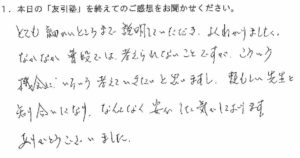 1. 本日の「友引塾」を終えてのご感想をお聞かせください。
とても細かいところまで説明していただき、よくわかりました。
なかなか普段では、考えられないことですが、こういう
機会にいろいろ考えていきたいと思いますし、頼もしい先生と
知り合いになり、なんとなく安心した気がしております。
ありがとうございました。